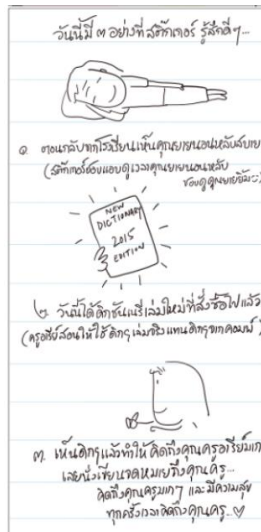 วันนี้มี ๓ อย่างที่สติ๊กเกอร์ รู้สึกดีๆ...
๑ ตอนกลับจากโรงเรียนเห็นคุณยายนอนหลับสบาย
(สติ๊กเกอร์ชอบแอบดูเวลาคุณยายนอนหลับ
ชอบดูคุณยายยิ้มนะ)
NEW
DICTIONARY
2015
EDITION
๒. วันนี้ได้ดิกชันเนรีเล่มใหม่ที่สั่งซื้อไปแล้ว
(ครูอรีย์สอนให้ใช้ดิกฯเล่มจริงแทนดิกฯจากคอมพ์)
๓. เห็นดิกฯแล้วทำให้คิดถึงคุณครูอรีย์มาก
เลยนั่งเขียนจดหมายถึงคุณครู...
คิดถึงคุณครูมากๆ และมีความสุข
ทุกครั้งเวลาคิดถึงคุณครู..♡